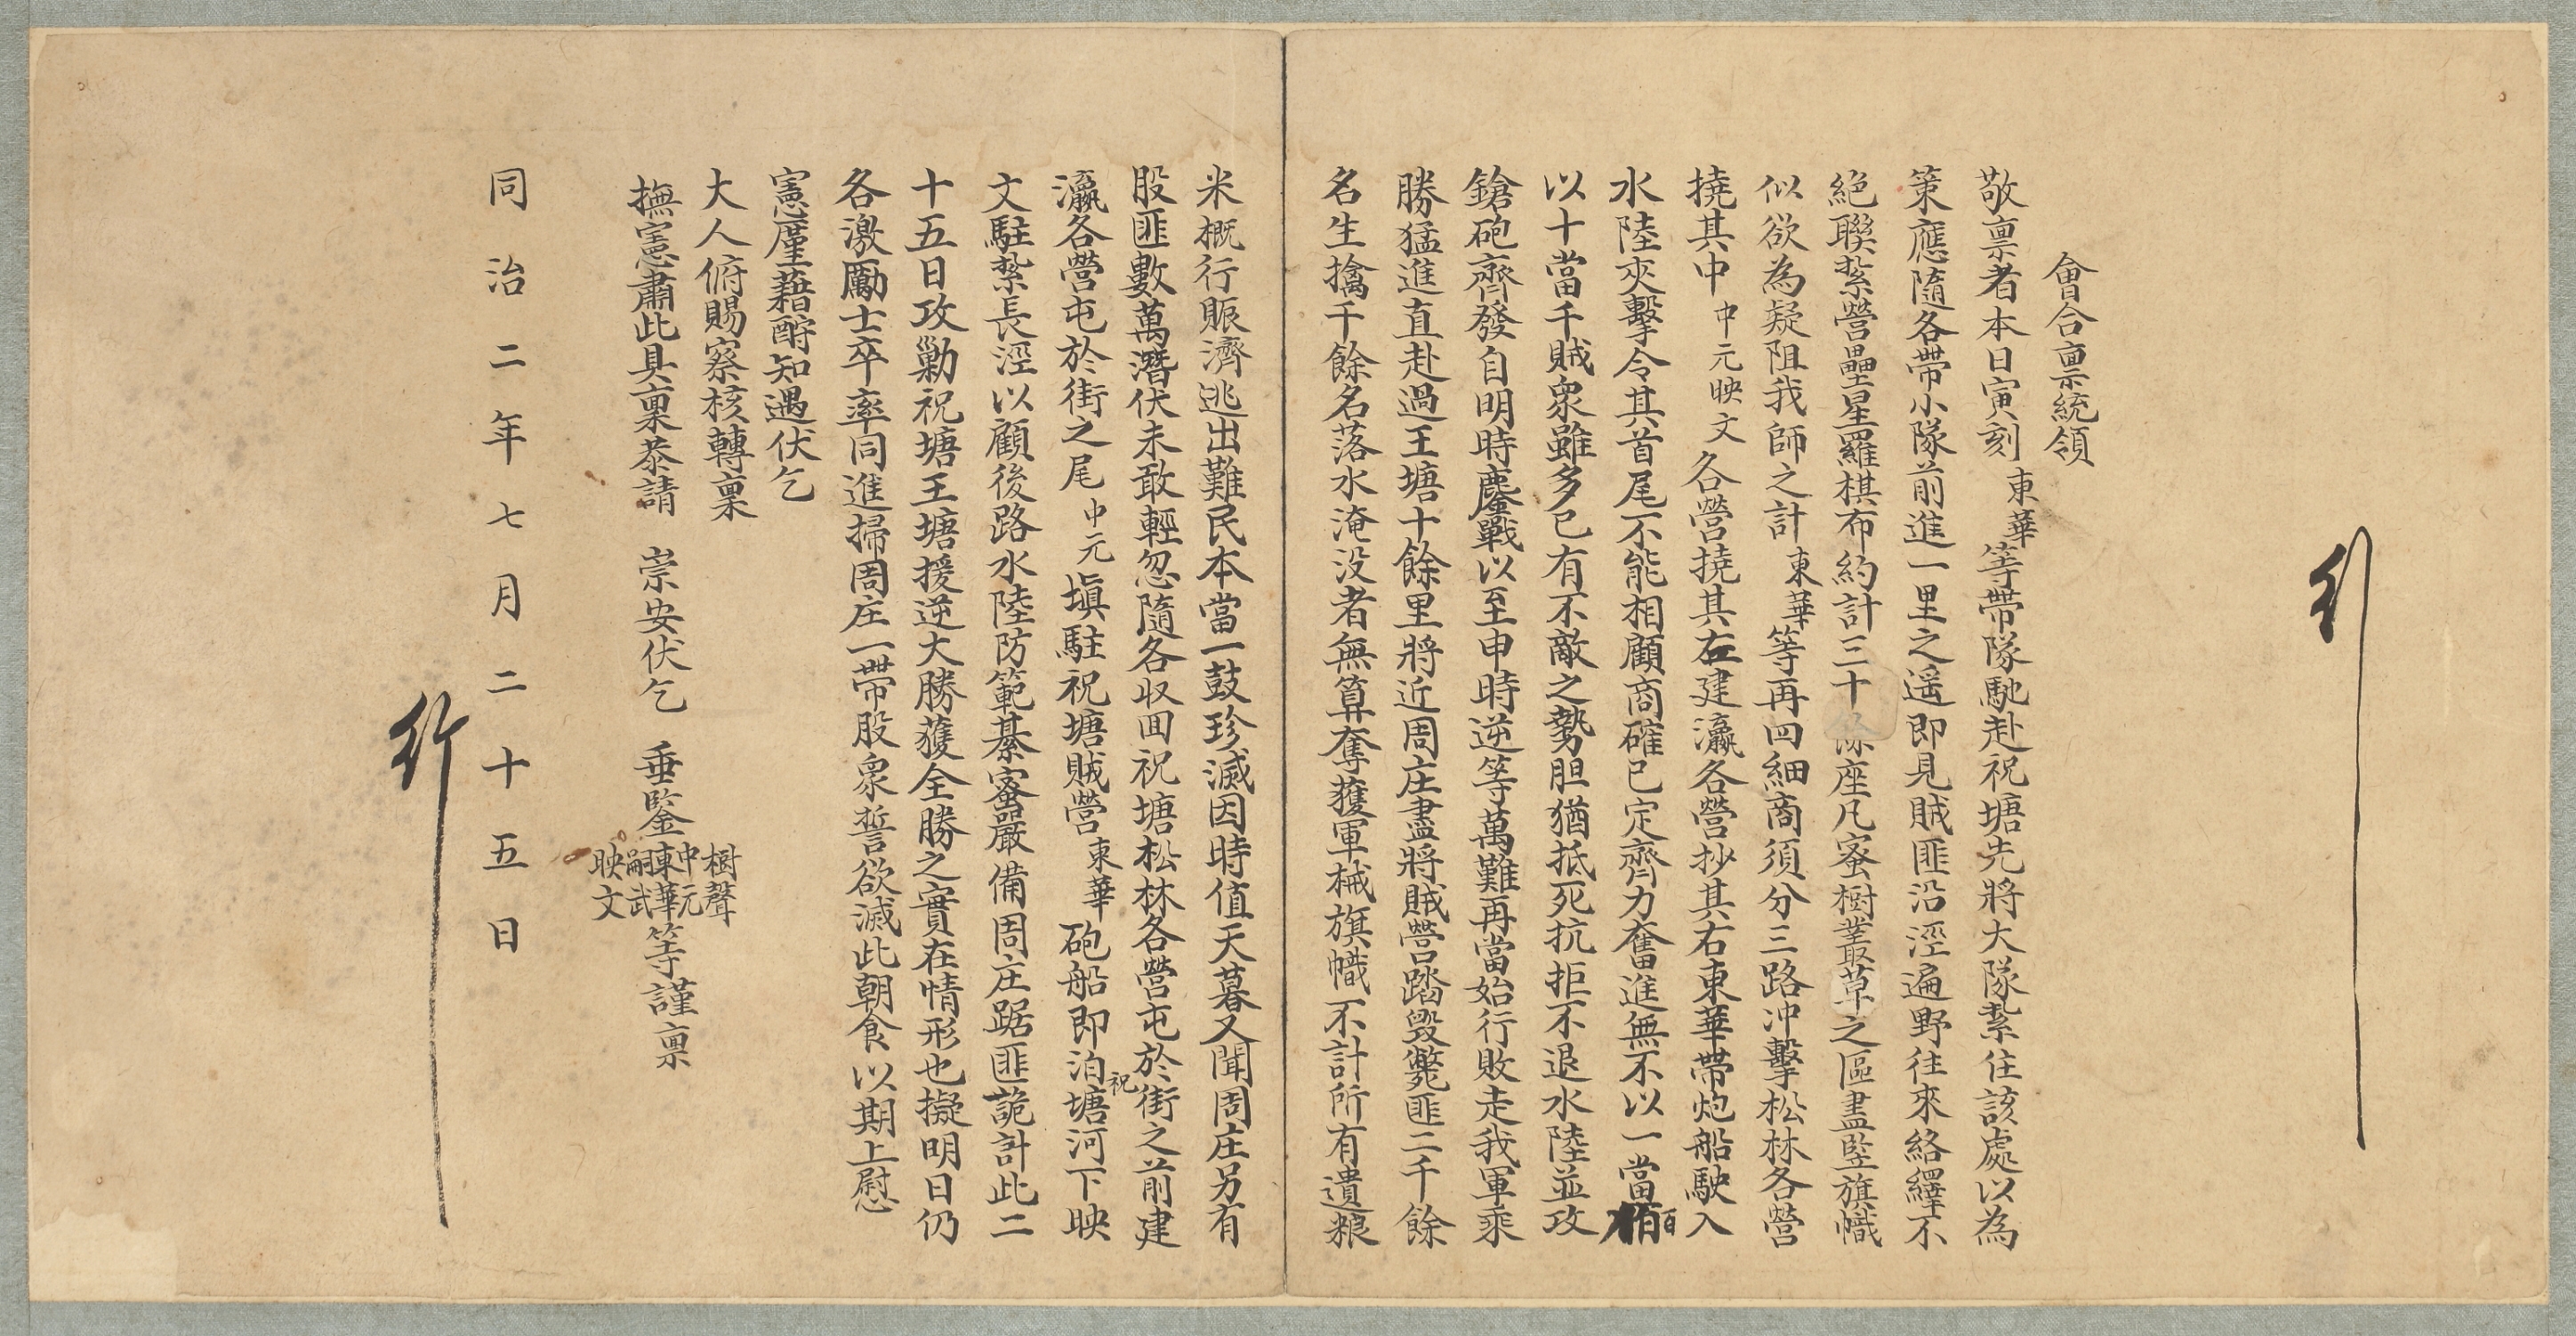 行
會合禀統領
敬禀者本日寅刻東華等帶隊馳赴祝塘先將大隊紮住該處以為
策應隨各帶小隊前進一里之遥即見賊匪沿涇遍野往來絡繹不
絕聯紮營壘星羅棋布約計三十餘座凡蜜樹叢草之區盡竪旗幟
似欲為疑阻我師之計東華等再四細商須分三路冲擊松林各營
撓其中中元映文各營撓其左建瀛各營抄其右東華帶炮船駛入
水陸夾擊令其首尾不能相顧商確已定齊力奮進無不以一當百
以十當千賊衆雖多已有不敵之勢胆猶抵死抗拒不退水陸並攻
鎗砲齊發自明時鏖戰以至申時逆等萬難再當始行敗走我軍乘
勝猛進直赴過王塘十餘里將近周庄盡將賊營踏毀斃匪二千餘
名生擒千餘名落水淹没者無算奪獲軍械旗幟不計所有遺粮
米概行賑濟逃出難民本當一鼓殄滅因時值天暮又聞周庄另有
股匪數萬潛伏未敢輕忽隨各収囬祝塘松林各營屯於街之前建
瀛各營屯於街之尾中元塡駐祝塘賊營東華砲船即泊祝塘河下映
文駐紮長涇以顧後路水陸防範綦蜜嚴備周庄踞匪詭計此二
十五日攻勦祝塘王塘援逆大勝獲全勝之實在情形也擬明日仍
各激勵士卒率同進掃周庄一帶股衆誓欲滅此朝食以期上慰
憲廑藉酧知遇伏乞
大人俯賜察核轉禀
撫憲肅此具禀恭請 崇安伏乞 垂鑒樹聲中元東華嗣武映文等謹禀
同治二年七月二十五日
行